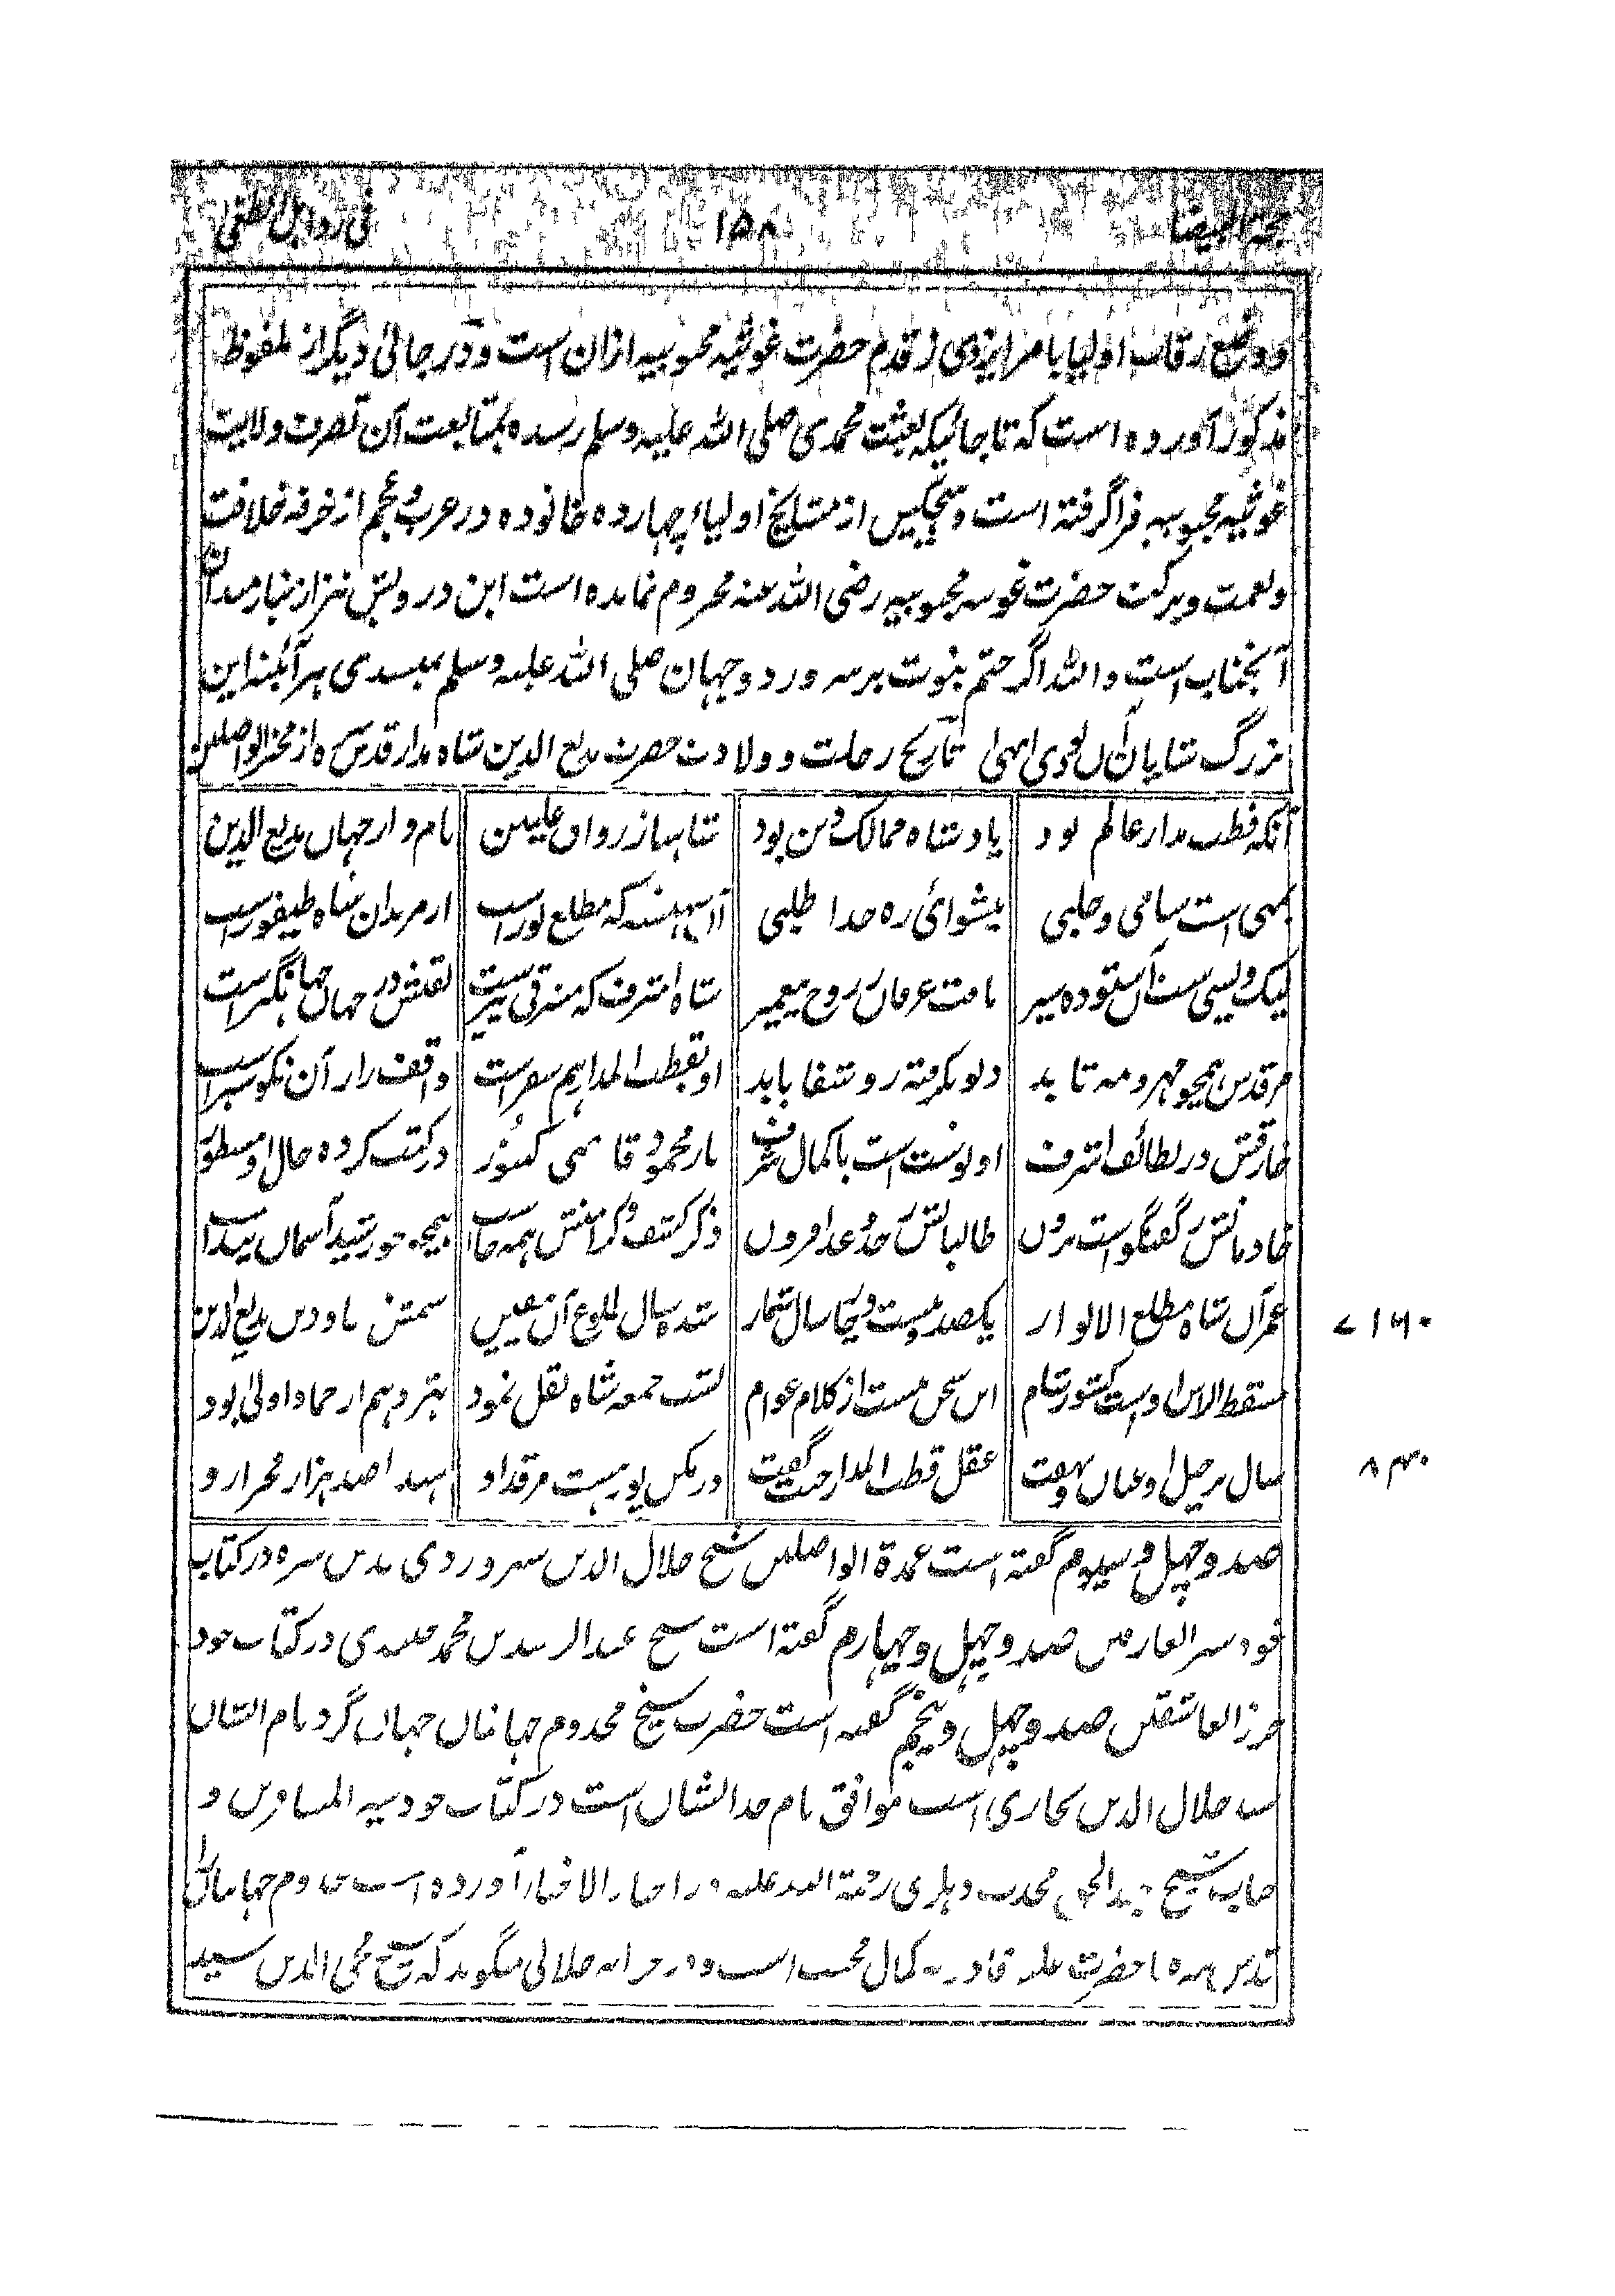 ۱۵۸
و وضع رقاب اولیا بامر ایزدی زقدم حضرت غوثیه محبوبیه ازان است و در جائی دیگر از ملفوظ
مذکور آورده است که تا جائیکه بعثت محمدی صلی الله علیه وسلم رسده بمتابعت آن تصرف ولایت
غوثیه محبوبیه فراگرفته است و هیچکس از مشایخ اولیاء چهارده خانوده در عرب و عجم از خرقه خلافت
و نعمت و برکت حضرت غوثیه محبوبیه رضی الله عنه محروم نمانده است این درویش نیز از نیازمندان
آنجناب است والله اگر ختم نبوت بر سرور دو جهان صلی الله علیه وسلم نمیشدی هر آئینه این
بزرگ شایان آن بودی انتهی تاریخ رحلت و ولادت حضرت بدیع الدین شاه مدار قدس سره از مخبر الواصلین
آنکه قطب مدار عالم بود یادشاه ممالک دین بود شاهباز رواق علیین نامدار جهان بدیع الدین
است سامی و حلبی پیشوائی ره خدا طلبی که مطلع نور است از مریدان شاه طیفور است
لیک ویسی ست آن ستوده سیر یافت عرفان ز روح پیغمبر شاه اشرف که مشرقی سیر ست نقش در جهان جهانگیر است
مرقدس همچو مهر و مه تابد دیو بگرفته رو شفا یابد او بقطب المدار هم سفر است واقف راز آن نکو سیر است
خارقش در لطائف اشرف او نوشت است با کمال شرف یار محمود قاضی کنتور در کتب کرده حال او مسطور
خادمانش ز گفتگو است برون طالبانش ز حد و عد افزون ذکر کشف و کرامتش همه جاست همچو خورشید آسمان پیداست
عمر آن شاه مطلع الانوار یکصد و بیست و پنج سال شمار شده سال طلوع آن معین بدیع الدین ۷۱۶۰
مسقط الراس اوست کشور شام این سخن هست از کلام عوام شب جمعه شاه نقل نمود هژدهم از جماد اولی بود
سال ترحیل او عیان و نهفت عقل قطب المدار جنت گفت در مکن پور هست مرقد او صد هزار محرار و ۸۴۰
صد و چهل و سیوم گفته است عمدة الواصلین شیخ جلال الدین سهروردی قدس سره در کتاب
خود سر العارفین صد و چهل و چهارم گفته است شیخ عبد الرشید بن محمد جنیدی در کتاب خود
حرز العاشقین صد و چهل و پنجم گفته است حضرت شیخ مخدوم جهانیان جهان گرد نام ایشان
سید جلال الدین بخاری است موافق نام جد ایشان است در کتاب خود سیه المسافرین و
جناب شیخ عبد الحق محدث دهلوی رحمة الله علیه در اخبار الاخیار آورده است مخدوم جهانیان را
قدس سره با حضرت علیه قادریه کمال محبت است و در خزانه جلالی میگوید که شیخ محی الدین سید